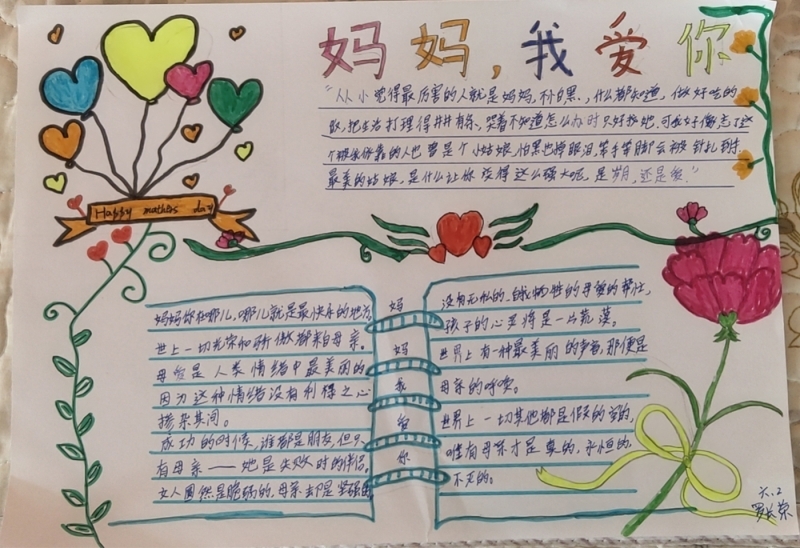 妈妈，我爱你
"从小觉得最厉害的人就是妈妈，不怕黑，什么都知道，做好吃的
饭，把生活打理得井井有条，哭着不知道怎么办时只好找她，可我好像忘了这
个被我依靠的人也曾是个小姑娘，怕黑也掉眼泪，笨手笨脚会被针扎到手
最美的姑娘，是什么让你变得这么强大呢，是岁月，还是爱"
Happy mothers day
妈妈你在哪儿，哪儿就是最快乐的地方
世上一切光荣和骄傲都来自母亲。
母爱是人类情绪中最美丽的
因为这种情绪没有利得之心
掺杂其间。
成功的时候，谁都是朋友但只
有母亲——她是失败时的伴侣。
女人固然是脆弱的，母亲却是坚强的
妈
妈
我
爱
你
没有无私的、自我牺牲的母爱的帮忙，
孩子的心灵将是一片荒漠。
世界上有一种最美丽的声音，那便是
母亲的呼唤。
世界上一切其他都是假的空的，
唯有母亲才是真的，永恒的，
不灭的。
六.2